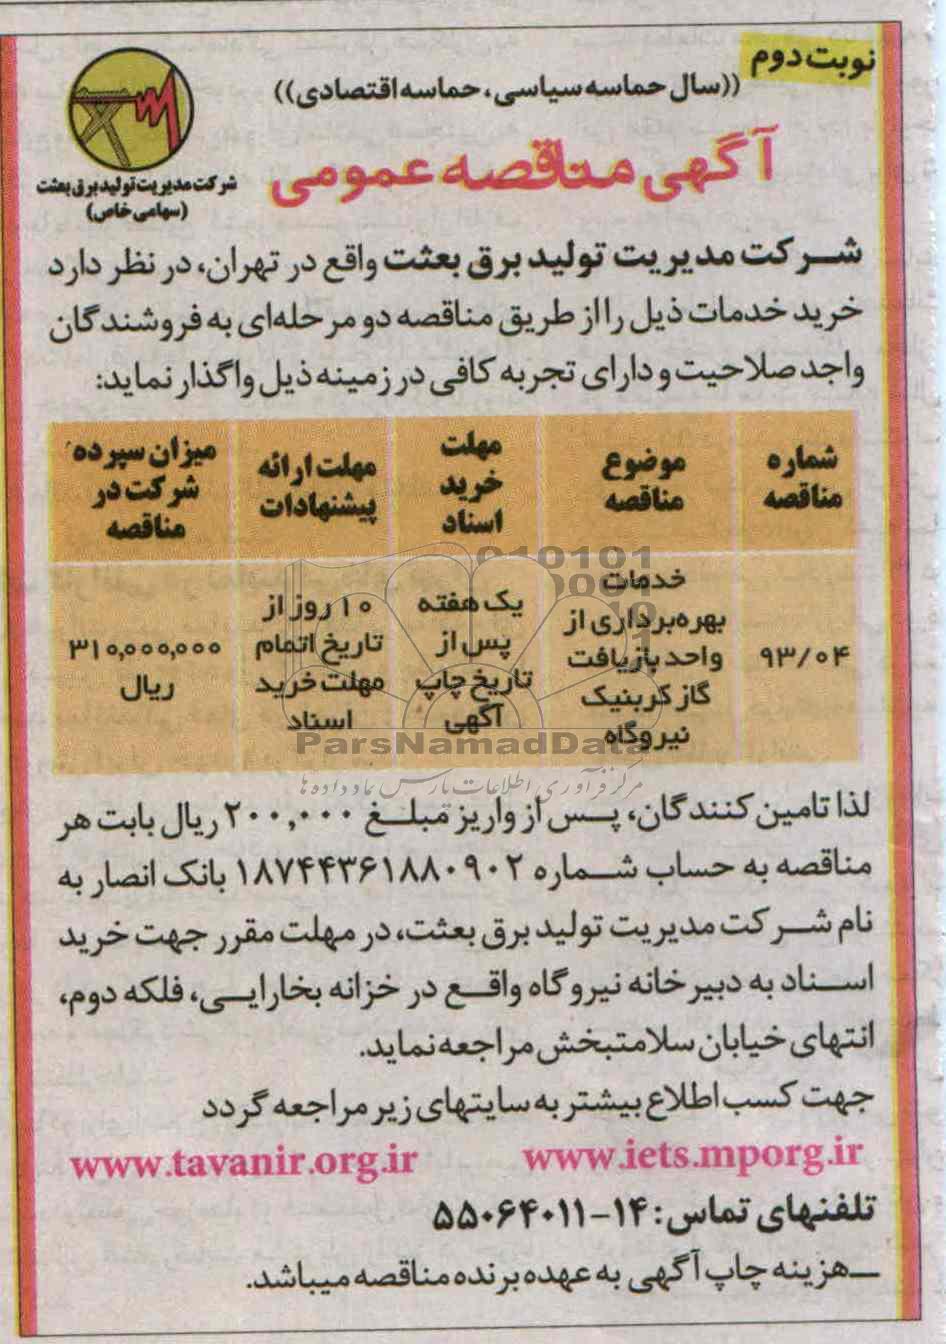 نوبت دوم
((سال حماسه سیاسی، حماسه اقتصادی))
آگهی مناقصه عمومی
شرکت مدیریت تولید برق بعثت
(سهامی خاص)
شرکت مدیریت تولید برق بعثت واقع در تهران، در نظر دارد
خرید خدمات ذیل را از طریق مناقصه دو مرحله‌ای به فروشندگان
واجد صلاحیت و دارای تجربه کافی در زمینه ذیل واگذار نماید:
شماره مناقصه
موضوع مناقصه
مهلت خرید اسناد
مهلت ارائه پیشنهادات
میزان سپرده شرکت در مناقصه
۹۳/۰۴
خدمات بهره‌برداری از واحد بازیافت گاز کربنیک نیروگاه
یک هفته پس از تاریخ چاپ آگهی
۱۰ روز از تاریخ اتمام مهلت خرید اسناد
۳۱۰,۰۰۰,۰۰۰ ریال
ParsNamadData
مرکز فرآوری اطلاعات پارس نماد داده ها
لذا تامین کنندگان، پس از واریز مبلغ ۲۰۰,۰۰۰ ریال بابت هر
مناقصه به حساب شماره ۱۸۷۴۴۳۶۱۸۸۰۹۰۲ بانک انصار به
نام شرکت مدیریت تولید برق بعثت، در مهلت مقرر جهت خرید
اسناد به دبیرخانه نیروگاه واقع در خزانه بخارایی، فلکه دوم،
انتهای خیابان سلامتبخش مراجعه نماید.
جهت کسب اطلاع بیشتر به سایتهای زیر مراجعه گردد
www.iets.mporg.ir
www.tavanir.org.ir
تلفنهای تماس: ۱۴-۵۵۰۶۴۰۱۱
ـهزینه چاپ آگهی به عهده برنده مناقصه میباشد.